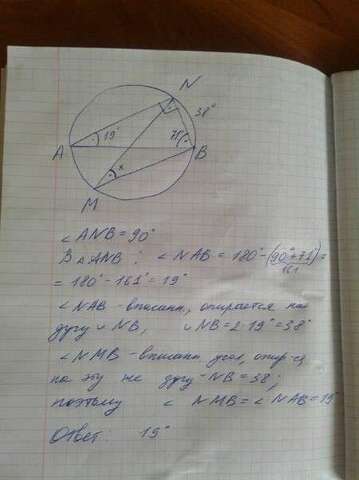 N
38°
19°
71°
A
B
x
M
∠ANB = 90°
В △ANB: ∠NAB = 180° - (90° + 71°) =
161
= 180° - 161° = 19°
∠NAB - вписанн, опирается на
дугу ∪ NB, ∪ NB = 2·19° = 38°
∠NMB - вписанн, угол, опир-ся
на эту же дугу - NB = 38°;
поэтому ∠NMB = ∠NAB = 19°
Ответ: 19°